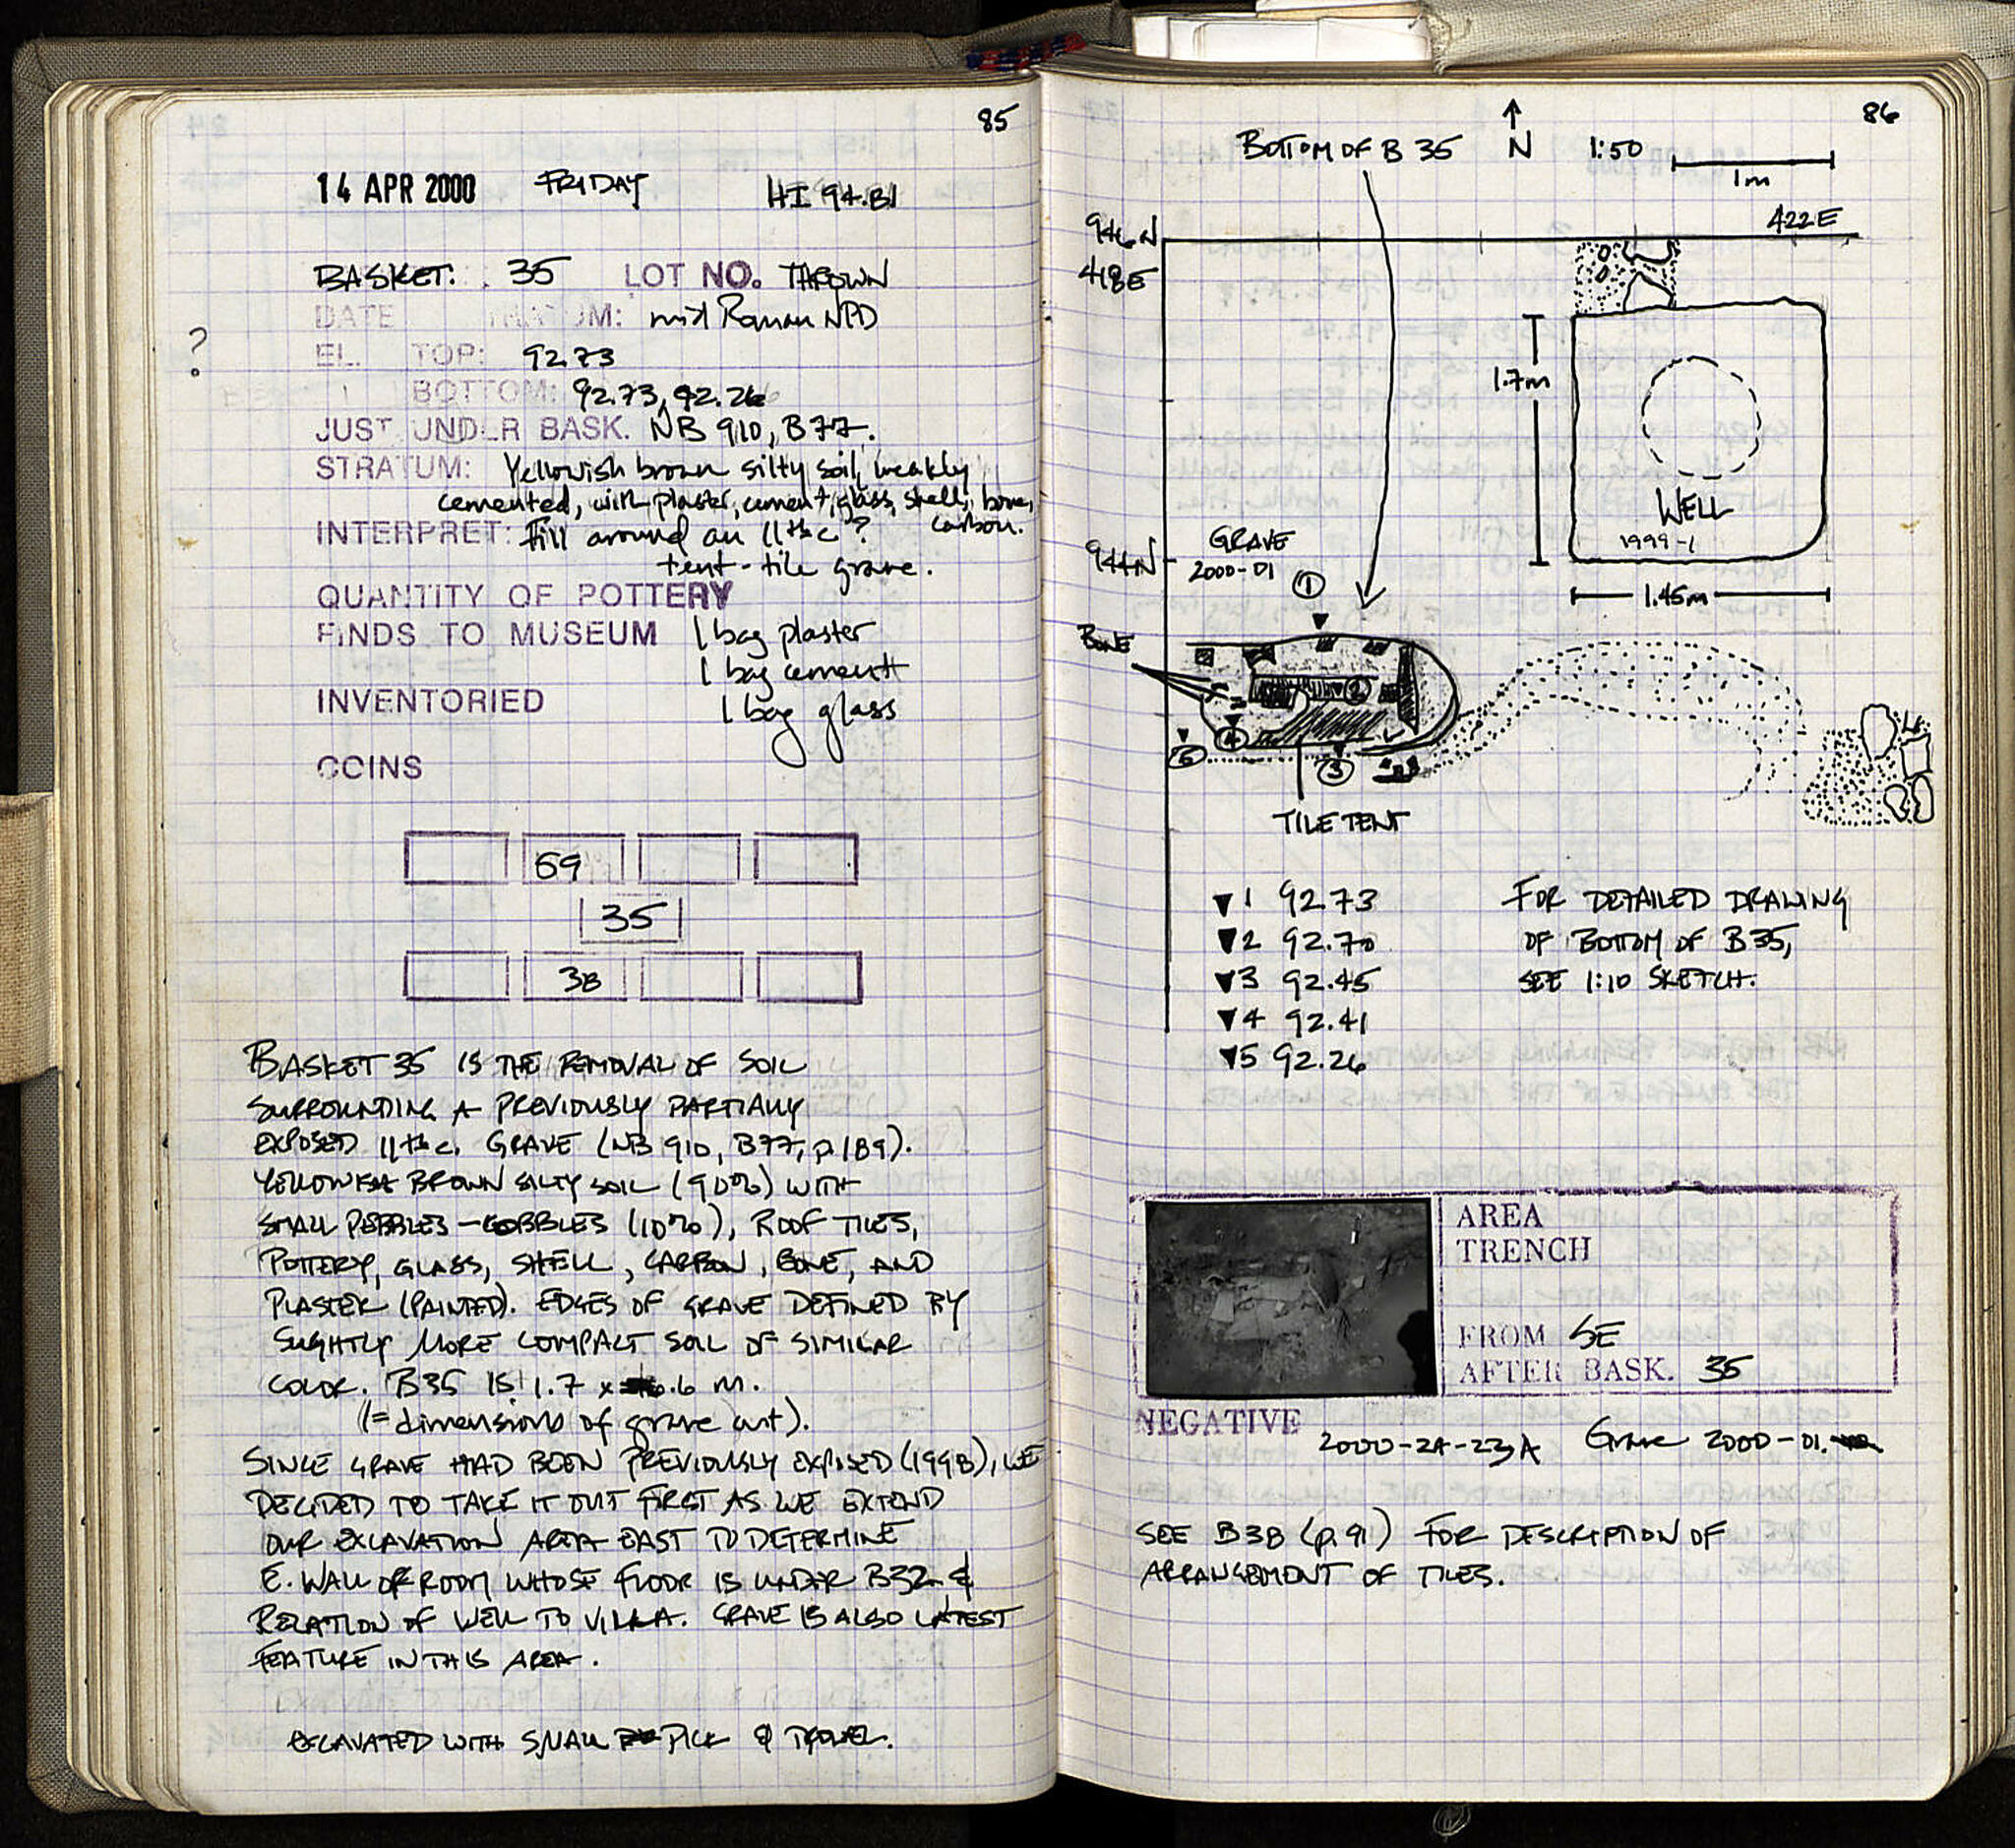 85
14 APR 2000 FRIDAY HI 94.81
BASKET: 35 LOT NO. THROWN
DATE mid Roman NPD
?
EL. TOP: 92.73
BOTTOM: 92.73, 92.26
JUST UNDER BASK. NB 910, B77.
STRATUM: Yellowish brown silty soil, weakly
cemented, with plaster, cement, glass, shells, bone,
carbon.
INTERPRET: Fill around an 11th c?
tent-tile grave.
QUANTITY OF POTTERY
FINDS TO MUSEUM 1 bag plaster
1 bag cement
INVENTORIED 1 bag glass
COINS
69
35
38
BASKET 35 IS THE REMOVAL OF SOIL
SURROUNDING A PREVIOUSLY PARTIALLY
EXPOSED 11th c. GRAVE (NB 910, B77, p. 189).
YELLOWISH BROWN SILTY SOIL (90%) WITH
SMALL PEBBLES - COBBLES (10%), ROOF TILES,
POTTERY, GLASS, SHELL, CARBON, BONE, AND
PLASTER (PAINTED). EDGES OF GRAVE DEFINED BY
SLIGHTLY MORE COMPACT SOIL OF SIMILAR
COLOR. B35 IS 1.7 x .6 m.
(= dimensions of grave cut).
SINCE GRAVE HAD BEEN PREVIOUSLY EXPOSED (1998), WE
DECIDED TO TAKE IT OUT FIRST AS WE EXTEND
OUR EXCAVATION AREA EAST TO DETERMINE
E. WALL OF ROOM WHOSE FLOOR IS UNDER B32 &
RELATION OF WELL TO VILLA. GRAVE IS ALSO LATEST
FEATURE IN THIS AREA.
EXCAVATED WITH SMALL PICK & TROWEL.
86
BOTTOM OF B 35 N 1:50
1m
946N
422E
418E
1.7m
WELL
1999-1
1.45m
944N
GRAVE
2000-01
1
BONE
2
4
5
3
TILE TENT
▼1 92.73
▼2 92.70
▼3 92.45
▼4 92.41
▼5 92.26
FOR DETAILED DRAWING
OF BOTTOM OF B35,
SEE 1:10 SKETCH.
AREA
TRENCH
FROM SE
AFTER BASK. 35
NEGATIVE 2000-24-23A Grave 2000-01.
SEE B38 (p. 91) FOR DESCRIPTION OF
ARRANGEMENT OF TILES.